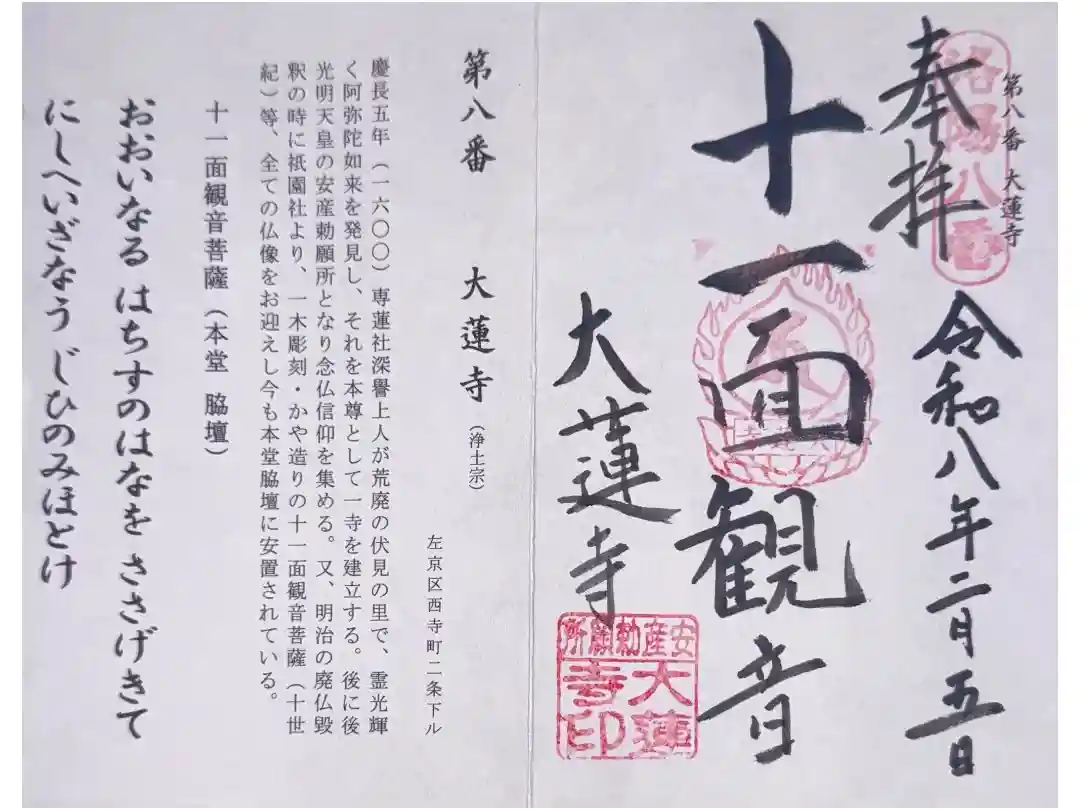 第八番 大蓮寺
洛陽八番
奉拝
令和八年二月五日
十一面観音
大蓮寺
安産勅願所
大蓮寺印
第八番 大蓮寺(浄土宗)
左京区西寺町二条下ル
慶長五年(一六〇〇)専蓮社深譽上人が荒廃の伏見の里で、霊光輝
く阿弥陀如来を発見し、それを本尊として一寺を建立する。後に後
光明天皇の安産勅願所となり念仏信仰を集める。又、明治の廃仏毀
釈の時に祇園社より、一木彫刻・かや造りの十一面観音菩薩(十世
紀)等、全ての仏像をお迎えし今も本堂脇壇に安置されている。
十一面観音菩薩(本堂 脇壇)
おおいなる はちすのはなを ささげきて
にしへいざなう じひのみほとけ